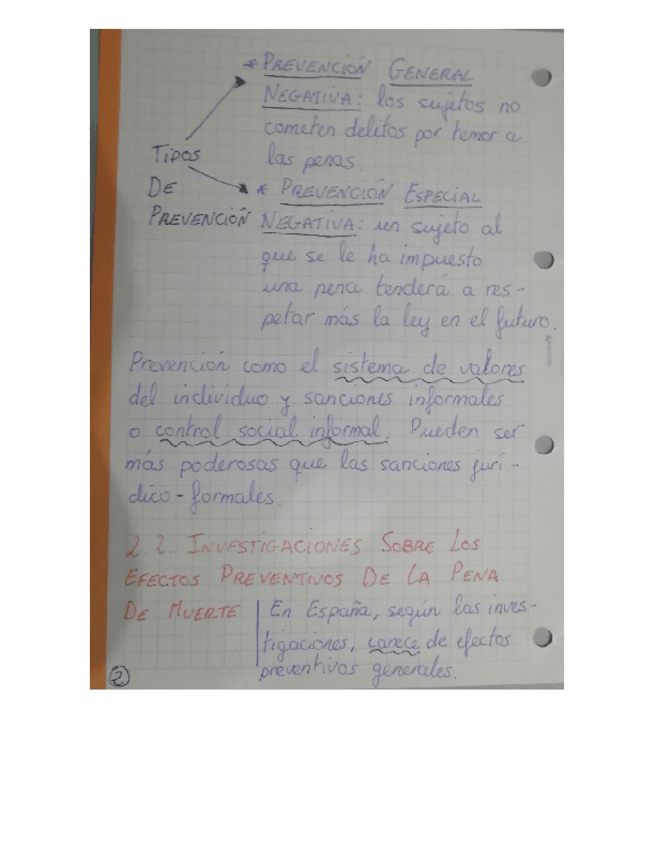 * PREVENCIÓN GENERAL
NEGATIVA: los sujetos no
cometen delitos por temor a
las penas.
TIPOS
DE
PREVENCIÓN
* PREVENCIÓN ESPECIAL
NEGATIVA: un sujeto al
que se le ha impuesto
una pena tenderá a res-
petar más la ley en el futuro.
Prevención como el sistema de valores
del individuo y sanciones informales
o control social informal. Pueden ser
más poderosas que las sanciones jurí-
dico-formales.
2.2. INVESTIGACIONES SOBRE LOS
EFECTOS PREVENTIVOS DE LA PENA
DE MUERTE
En España, según las inves-
tigaciones, carece de efectos
preventivos generales.
2